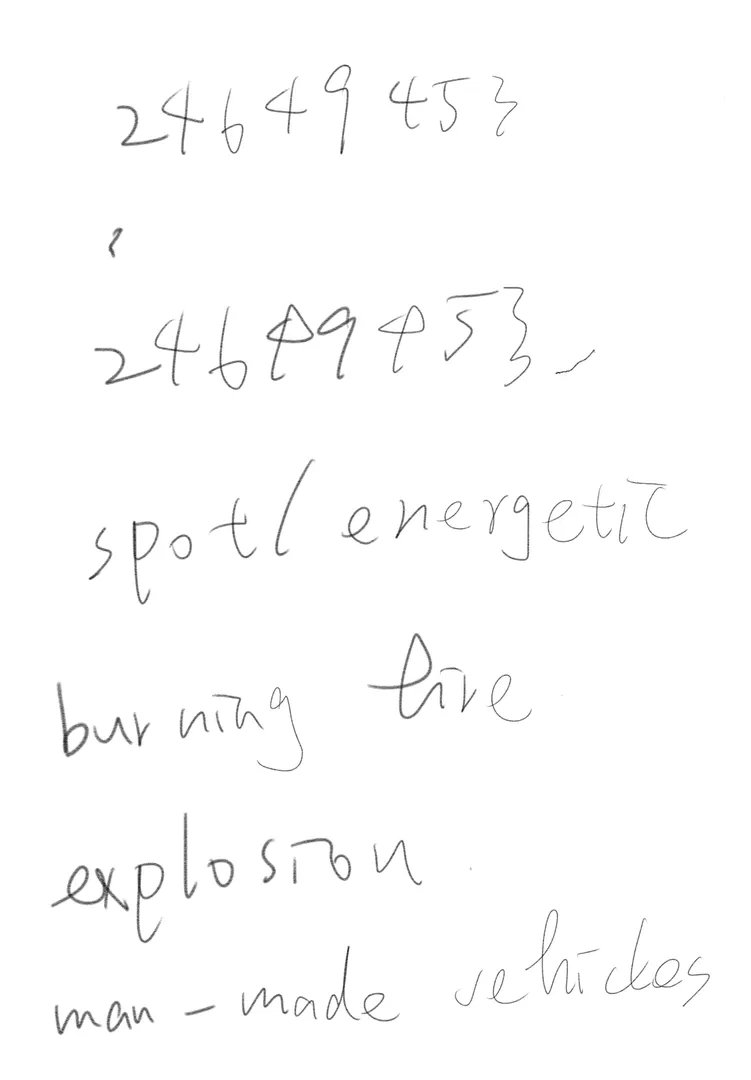 24649 453
24649453
spot/ energetic
burning fire
explosion
man-made vehicles